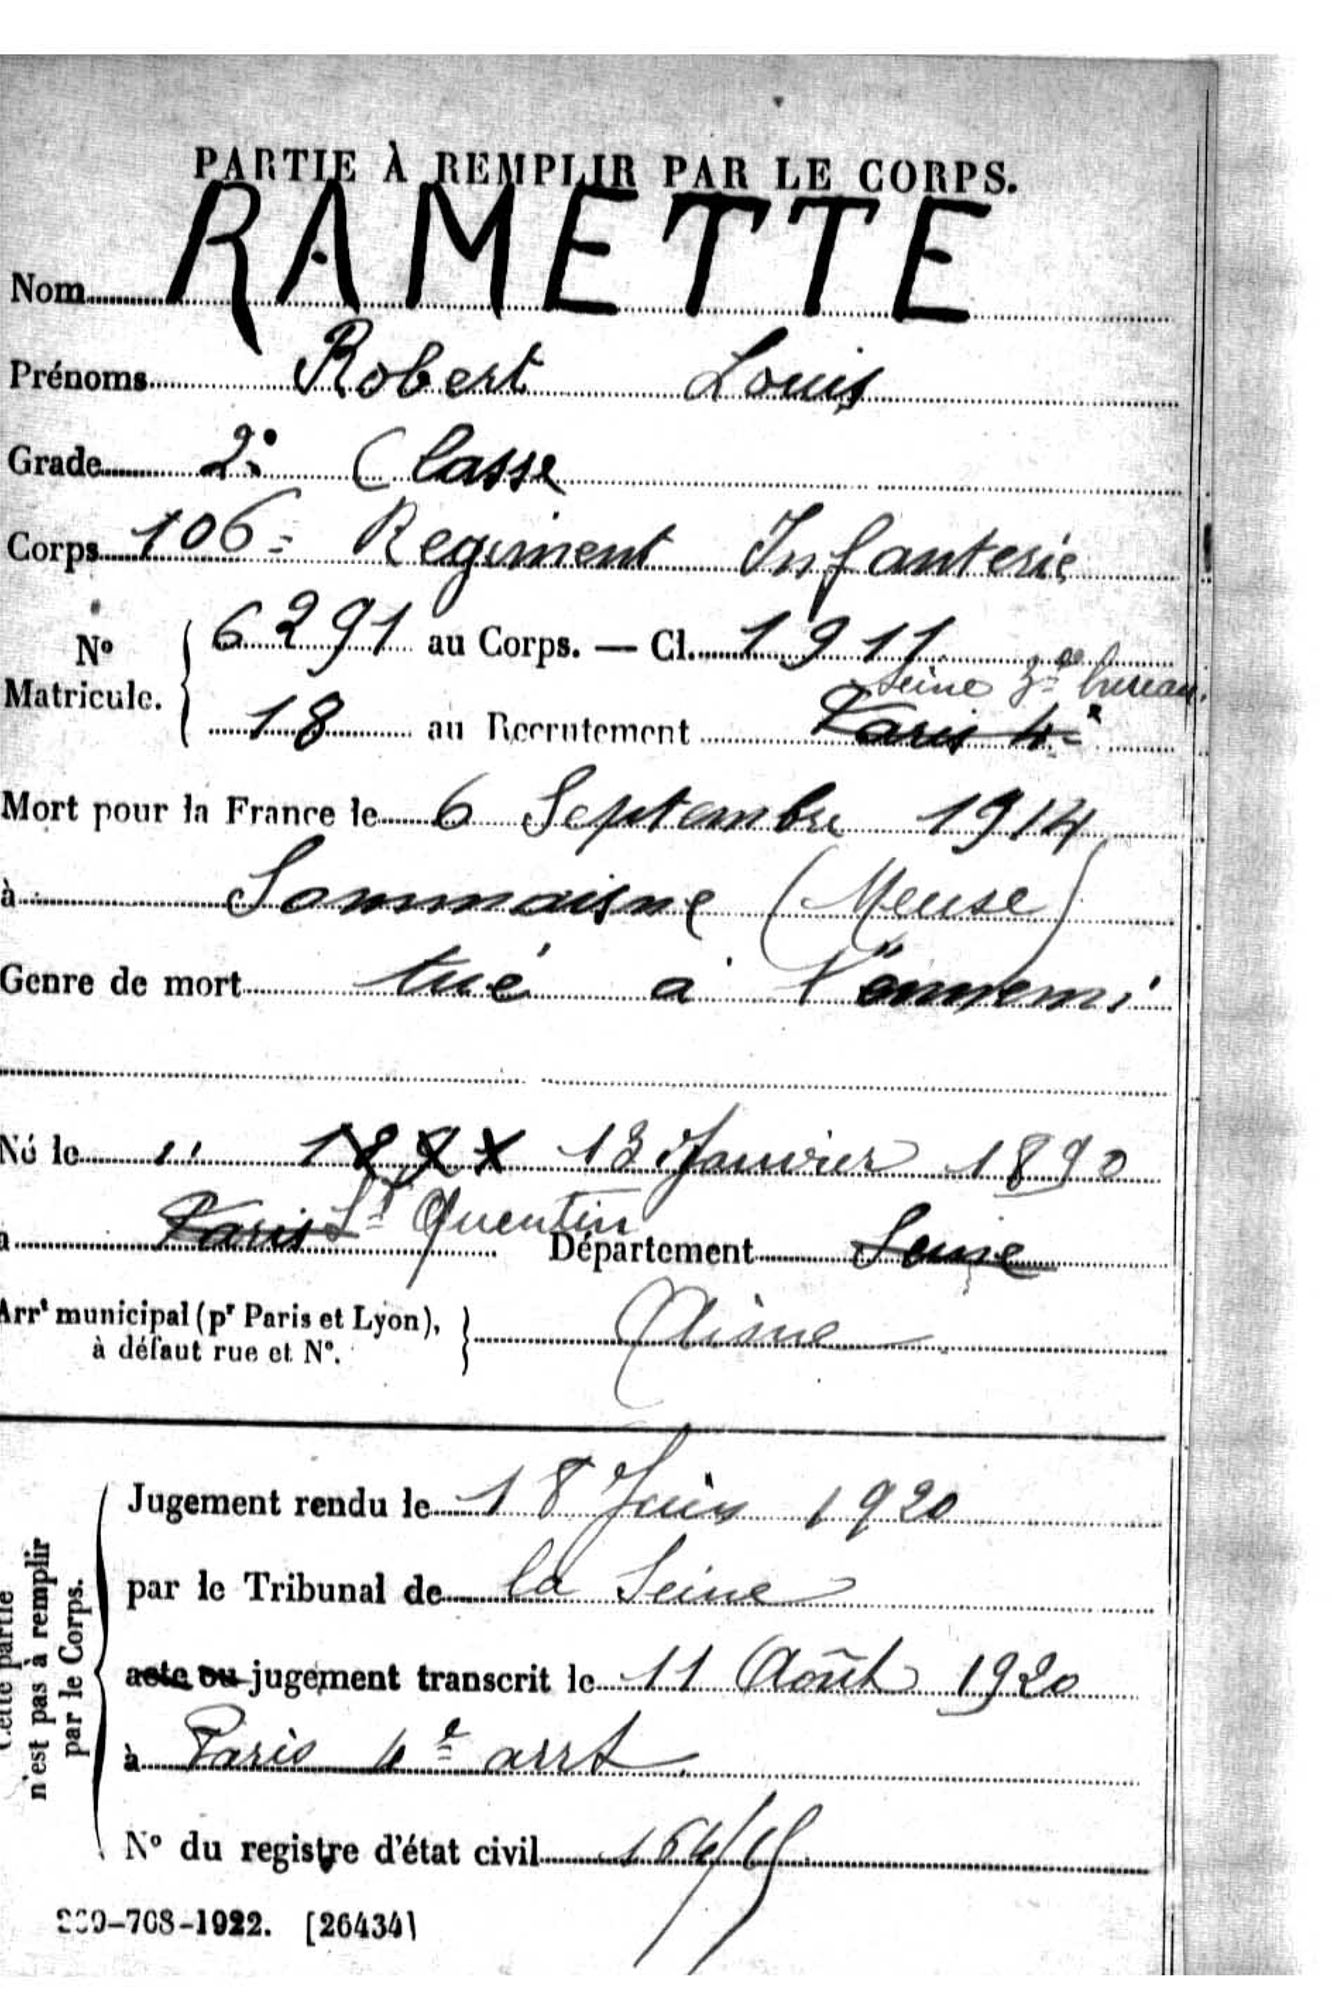 PARTIE À REMPLIR PAR LE CORPS.
Nom RAMETTE
Prénoms Robert Louis
Grade 2e Classe
Corps 106e Regiment Infanterie
No Matricule. { 6291 au Corps. — Cl. 1911
Seine 3e bureau.
18 au Recrutement Paris 4e
Mort pour la France le 6 Septembre 1914
à Sommaisne (Meuse)
Genre de mort tué à l'ennemi
Né le 13 Janvier 1890
à Paris St Quentin Département Seine
Arrt municipal (pr Paris et Lyon), à défaut rue et No. } Aisne
Cette partie n'est pas à remplir par le Corps.
Jugement rendu le 18 Juin 1920
par le Tribunal de la Seine
acte ou jugement transcrit le 11 Août 1920
à Paris 4e arrt.
No du registre d'état civil
-708-1922. [26434]